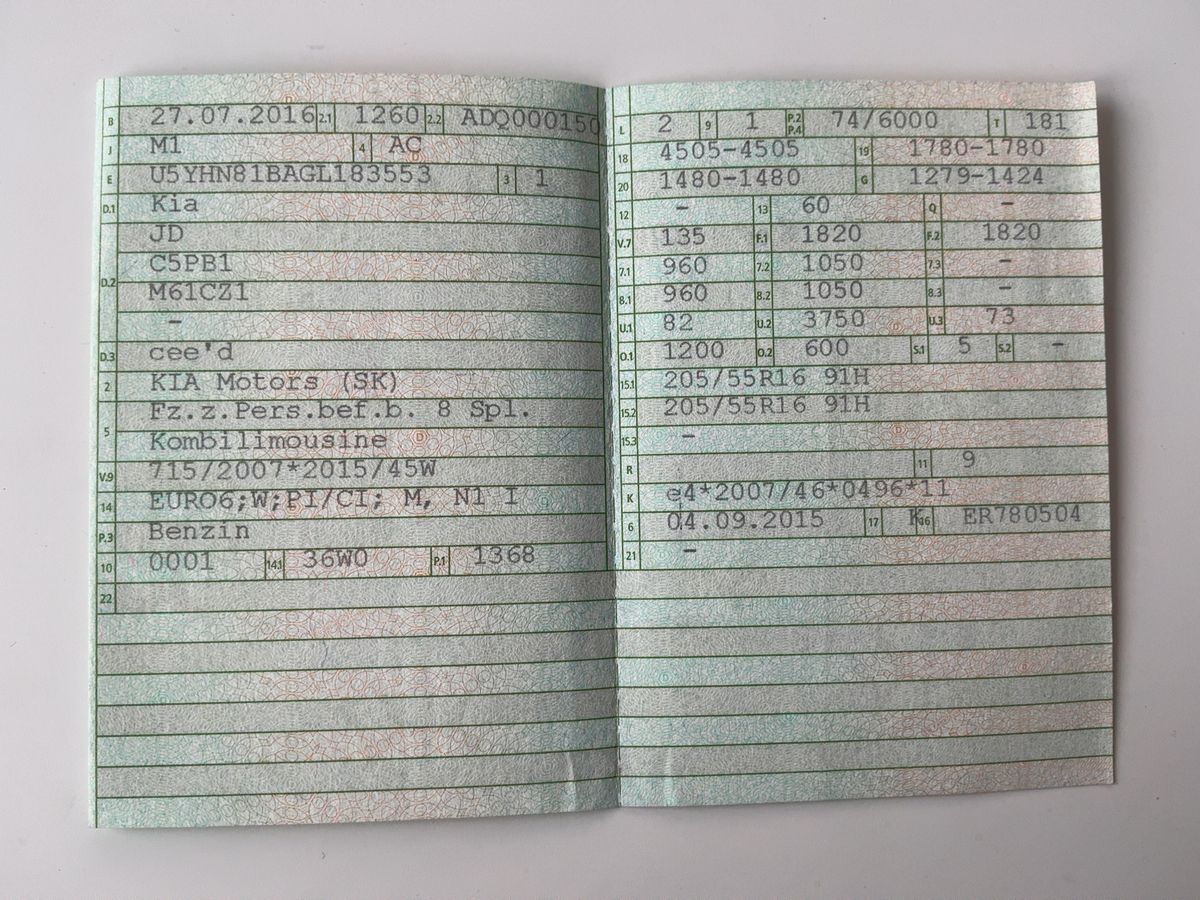 B 27.07.2016 2.1 1260 2.2 ADQ000150
J M1 4 AC
E U5YHN81BAGL183553 3 1
D.1 Kia
JD
D.2 C5PB1
M61CZ1
-
D.3 cee'd
2 KIA Motors (SK)
5 Fz.z.Pers.bef.b. 8 Spl.
Kombilimousine
V.9 715/2007*2015/45W
14 EURO6;W;PI/CI; M, N1 I
P.3 Benzin
10 0001 14.1 36W0 P.1 1368
22
L 2 9 1 P.2 P.4 74/6000 T 181
18 4505-4505 19 1780-1780
20 1480-1480 G 1279-1424
12 - 13 60 Q -
V.7 135 F.1 1820 F.2 1820
7.1 960 7.2 1050 7.3 -
8.1 960 8.2 1050 8.3 -
U.1 82 U.2 3750 U.3 73
O.1 1200 O.2 600 S.1 5 S.2 -
15.1 205/55R16 91H
15.2 205/55R16 91H
15.3 -
R 11 9
K e4*2007/46*0496*11
6 04.09.2015 17 K 16 ER780504
21 -